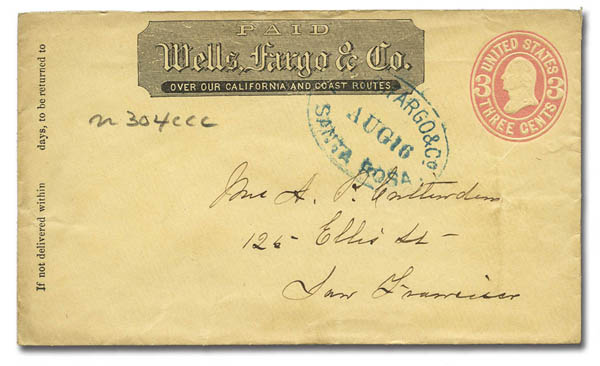 PAID
Wells, Fargo & Co.
OVER OUR CALIFORNIA AND COAST ROUTES.
UNITED STATES
3 3
THREE CENTS
FARGO & Co.
AUG 16
SANTA ROSA
If not delivered within days, to be returned to
A. P. Crittenden
125 Ellis St
San Francisco